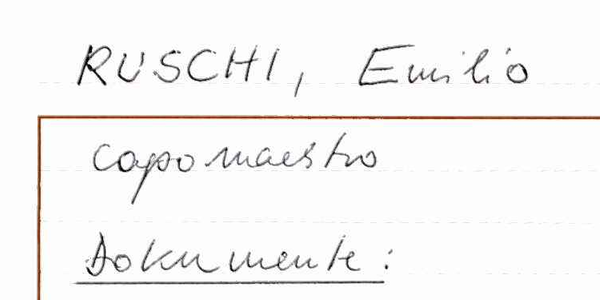 RUSCHI, Emilio
capomaestro
Dokumente: